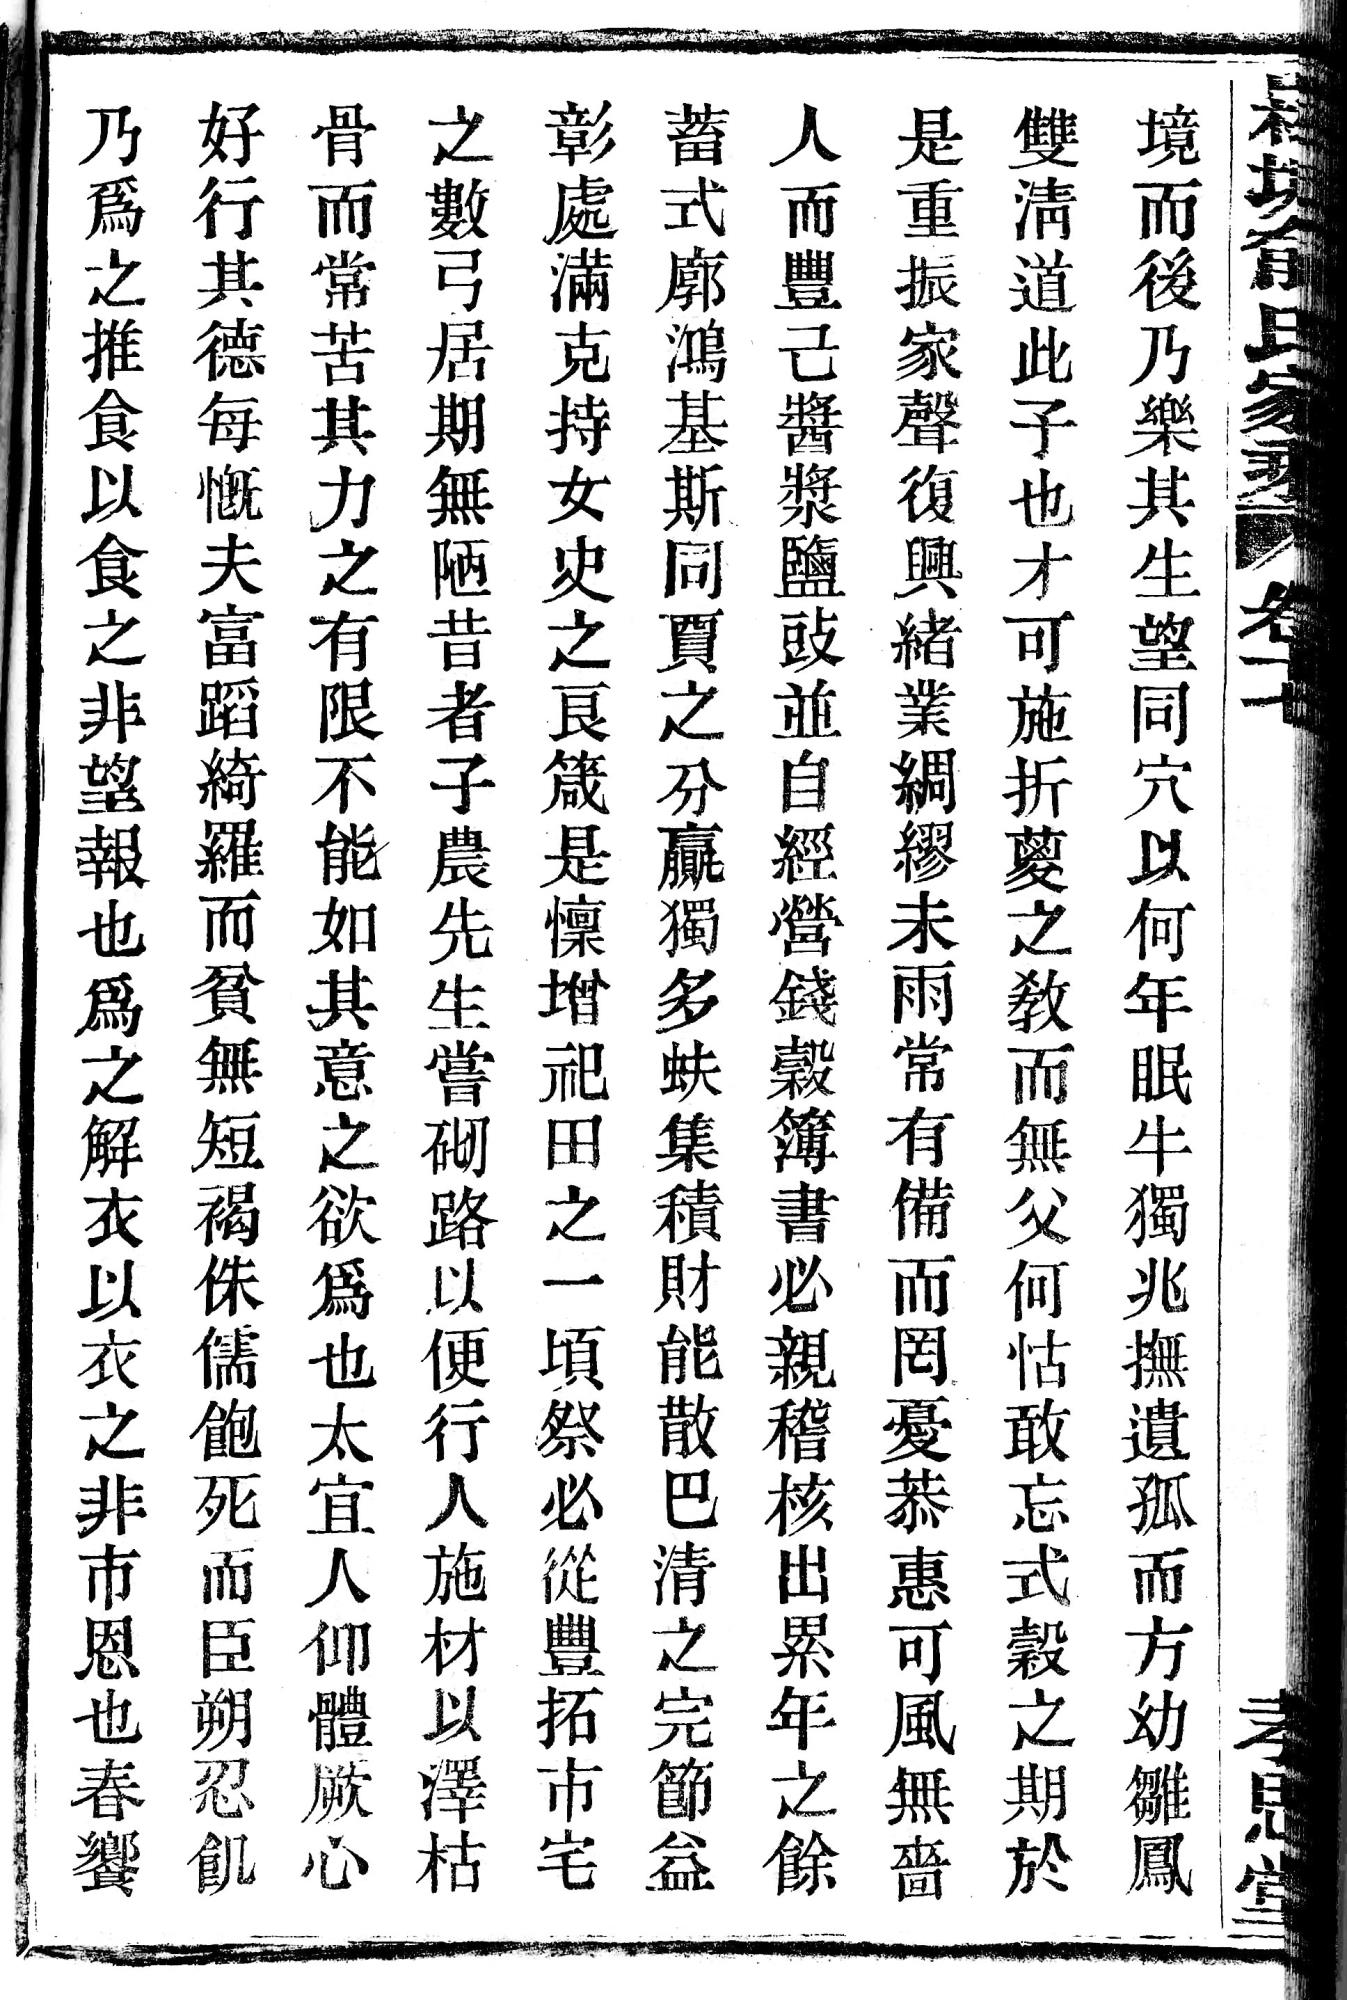 氏家乘 卷十七 孝思堂
境而後乃樂其生望同穴以何年眠牛獨兆撫遺孤而方幼雛鳳
雙淸道此子也才可施折葼之敎而無父何怙敢忘式穀之期於
是重振家聲復興緒業綢繆未雨常有備而罔憂恭惠可風無嗇
人而豐己醬漿鹽豉並自經營錢穀簿書必親稽核出累年之餘
蓄式廓鴻基斯同賈之分贏獨多蚨集積財能散巴清之完節益
彰處滿克持女史之良箴是懍增祀田之一頃祭必從豐拓市宅
之數弓居期無陋昔者子農先生嘗砌路以便行人施材以澤枯
骨而常苦其力之有限不能如其意之欲爲也太宜人仰體厥心
好行其德每慨夫富蹈綺羅而貧無短褐侏儒飽死而臣朔忍飢
乃爲之推食以食之非望報也爲之解衣以衣之非市恩也春饗